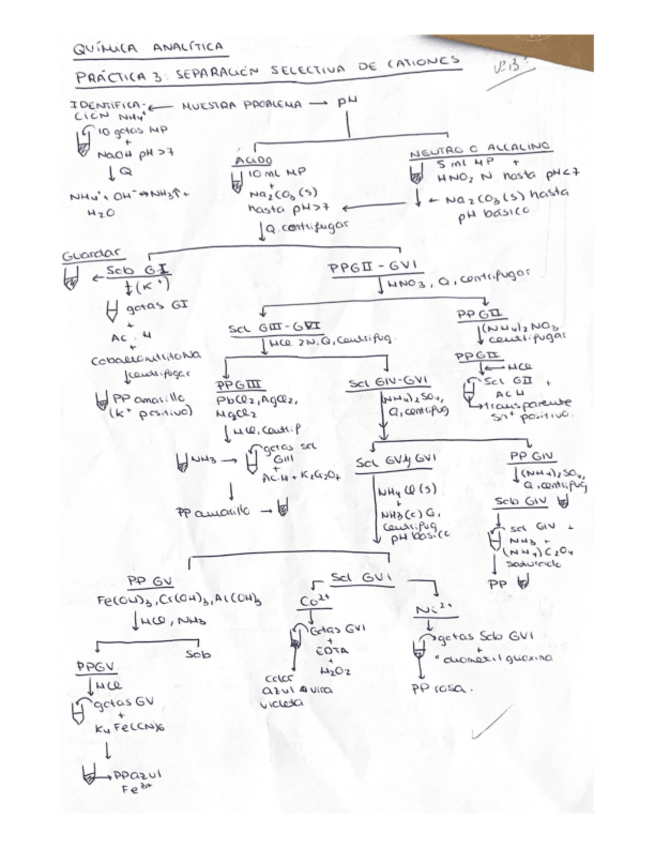 QUÍMICA ANALÍTICA
PRÁCTICA 3: SEPARACIÓN SELECTIVA DE CATIONES
IDENTIFICA- ← MUESTRA PROBLEMA → pH
CIÓN NH₄⁺
10 gotas MP
+
NaOH pH>7
↓ Q
NH₄⁺ + OH⁻ → NH₃↑ +
H₂O
ÁCIDO
10 mL MP
+
Na₂CO₃(s)
hasta pH>7
↓ Q, centrifugar
NEUTRO O ALCALINO
5 mL MP +
HNO₂ N hasta pH<7
↓ ← Na₂CO₃(s) hasta
pH básico
Guardar
← Sob GI
↓ (K⁺)
gotas GI
+
Ac.H
+
↓ centrifugar
PP amarillo
(K⁺ positivo)
PPGII - GVI
↓ HNO₃, Q, centrifugar
Scl GIII - GVI
↓ HCl 2N, Q, centrifug.
PPGII
↓ (NH₄)₂NO₃
centrifugar
PPGII
← HCl
Scl GII +
AcH
→ transparente
Sn⁺ positivo.
PPGIII
PbCl₂, AgCl₂,
HgCl₂
↓ HCl, centrif
NH₃ →
gotas scl
GIII
+
AcH + K₂CrO₄
↓
PP amarillo →
Scl GIV-GVI
(NH₄)₂SO₄,
Q, centrifug
Scl GV y GVI
NH₄Cl(s)
+
NH₃(c) G,
centrifug
pH básico
PP GIV
↓ (NH₄)₂SO₄,
Q, centrifug
Sob GIV
scl GIV +
NH₃ +
(NH₄)C₂O₄
PP
PP GV
Fe(OH)₃, Cr(OH)₃, Al(OH)₃
↓ HCl, NH₃
PPGV
Sob
↓ HCl
gotas GV
+
K₄Fe(CN)₆
↓
→ PP azul
Fe³⁺
Scl GVI
Co²⁺
Gotas GVI
+
EDTA
+
H₂O₂
color
azul → vira
violeta
Ni²⁺
gotas Sob GVI
+
PP rosa.